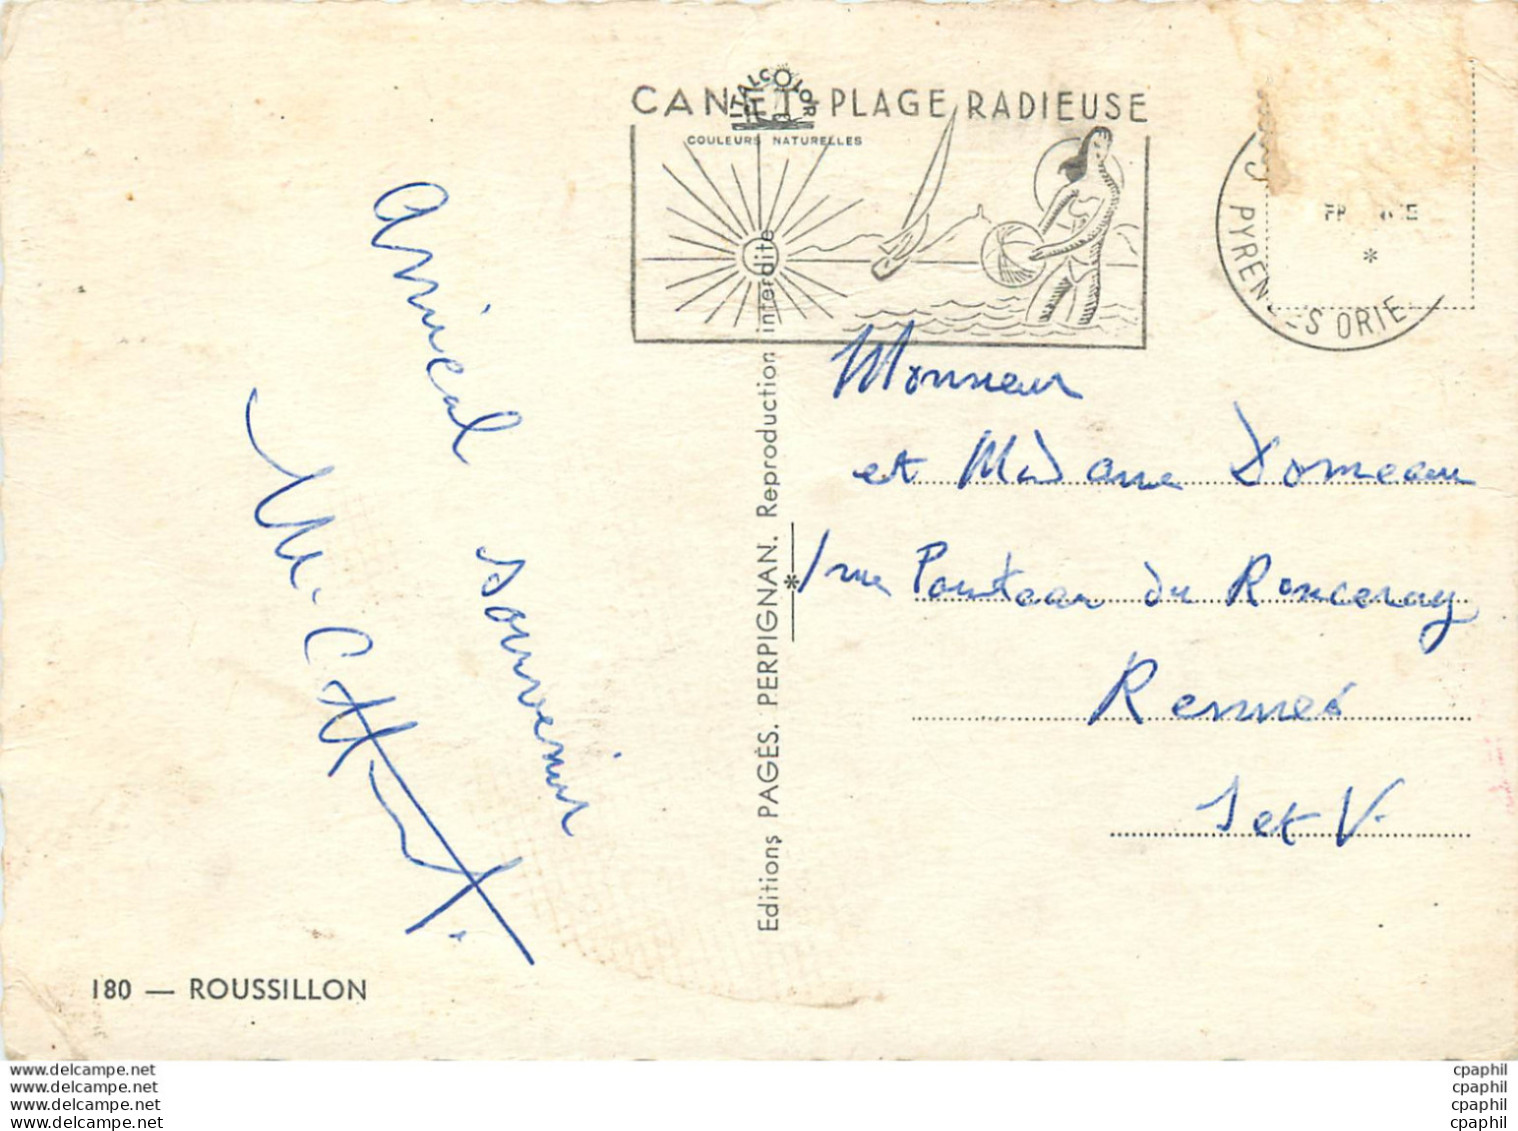 CANET PLAGE RADIEUSE
ITALCOLOR
COULEURS NATURELLES
FRANCE
*
PYRÉNÉES ORIE
Amical souvenir
Monsieur
et Madame Domeau
1 rue Pointeau du Ronceray
Rennes
I et V.
Editions PAGÈS. PERPIGNAN. Reproduction interdite
*
180 — ROUSSILLON
www.delcampe.net
www.delcampe.net
www.delcampe.net
www.delcampe.net
cpaphil
cpaphil
cpaphil
cpaphil